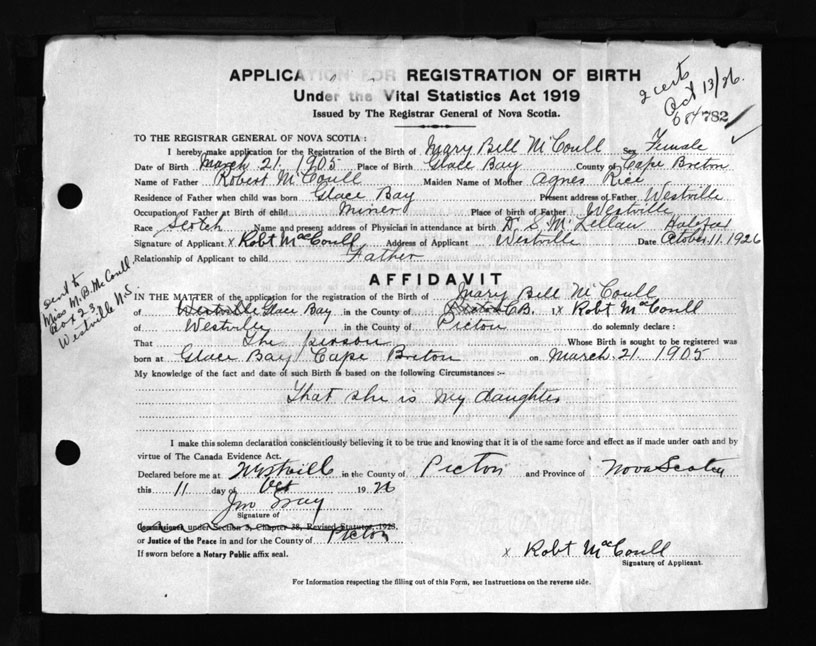 APPLICATION FOR REGISTRATION OF BIRTH
Under the Vital Statistics Act 1919
Issued by The Registrar General of Nova Scotia.
2 certs
Oct 13/26.
782
TO THE REGISTRAR GENERAL OF NOVA SCOTIA :
I hereby make application for the Registration of the Birth of Mary Bell McCoull Sex Female
Date of Birth March 21. 1905 Place of Birth Glace Bay County of Cape Breton
Name of Father Robert McCoull Maiden Name of Mother Agnes Rice
Residence of Father when child was born Glace Bay Present address of Father Westville
Occupation of Father at Birth of child Miner Place of birth of Father Westville
Race Scotch Name and present address of Physician in attendance at birth Dr S. McLellan Halifax
Signature of Applicant x Robt MacCoull Address of Applicant Westville Date October 11. 1926
Relationship of Applicant to child Father
sent to
Miss M. B. McCoull
Box 23
Westville N.S.
AFFIDAVIT
IN THE MATTER of the application for the registration of the Birth of Mary Bell McCoull
of Westville Glace Bay in the County of Pictou C.B. I x Robt MacCoull
of Westville in the County of Picton do solemnly declare :
That The person Whose Birth is sought to be registered was
born at Glace Bay Cape Breton on March. 21. 1905
My knowledge of the fact and date of such Birth is based on the following Circumstances :-
That she is my daughter
I make this solemn declaration conscientiously believing it to be true and knowing that it is of the same force and effect as if made under oath and by
virtue of The Canada Evidence Act.
Declared before me at Westville in the County of Picton and Province of Nova Scotia
this 11 day of Oct 1926
Jno Gray
Signature of
Commissioner under Section 3, Chapter 38, Revised Statutes, 1923,
or Justice of the Peace in and for the County of Picton
If sworn before a Notary Public affix seal.
x Robt MacCoull
Signature of Applicant.
For Information respecting the filling out of this Form, see Instructions on the reverse side.